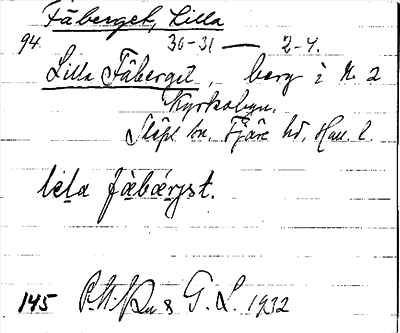 Fäberget, Lilla
94. 30-31 — 2-4.
Lilla Fäberget, berg i N. 2
Kyrkobyn,
Släps sn, Fjäre hd, Hall. l.
lila fàbǽrjət.
145 G. L. 1932